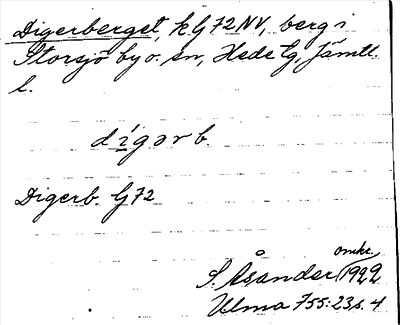 Digerberget, k G 72 NV, berg i
Storsjö by o. sn, Hede tg, Jämtl.
l.
dígərb.
Digerb. G 72
omkr.
S. Åsander 1922
Ulma 755:23, s. 4